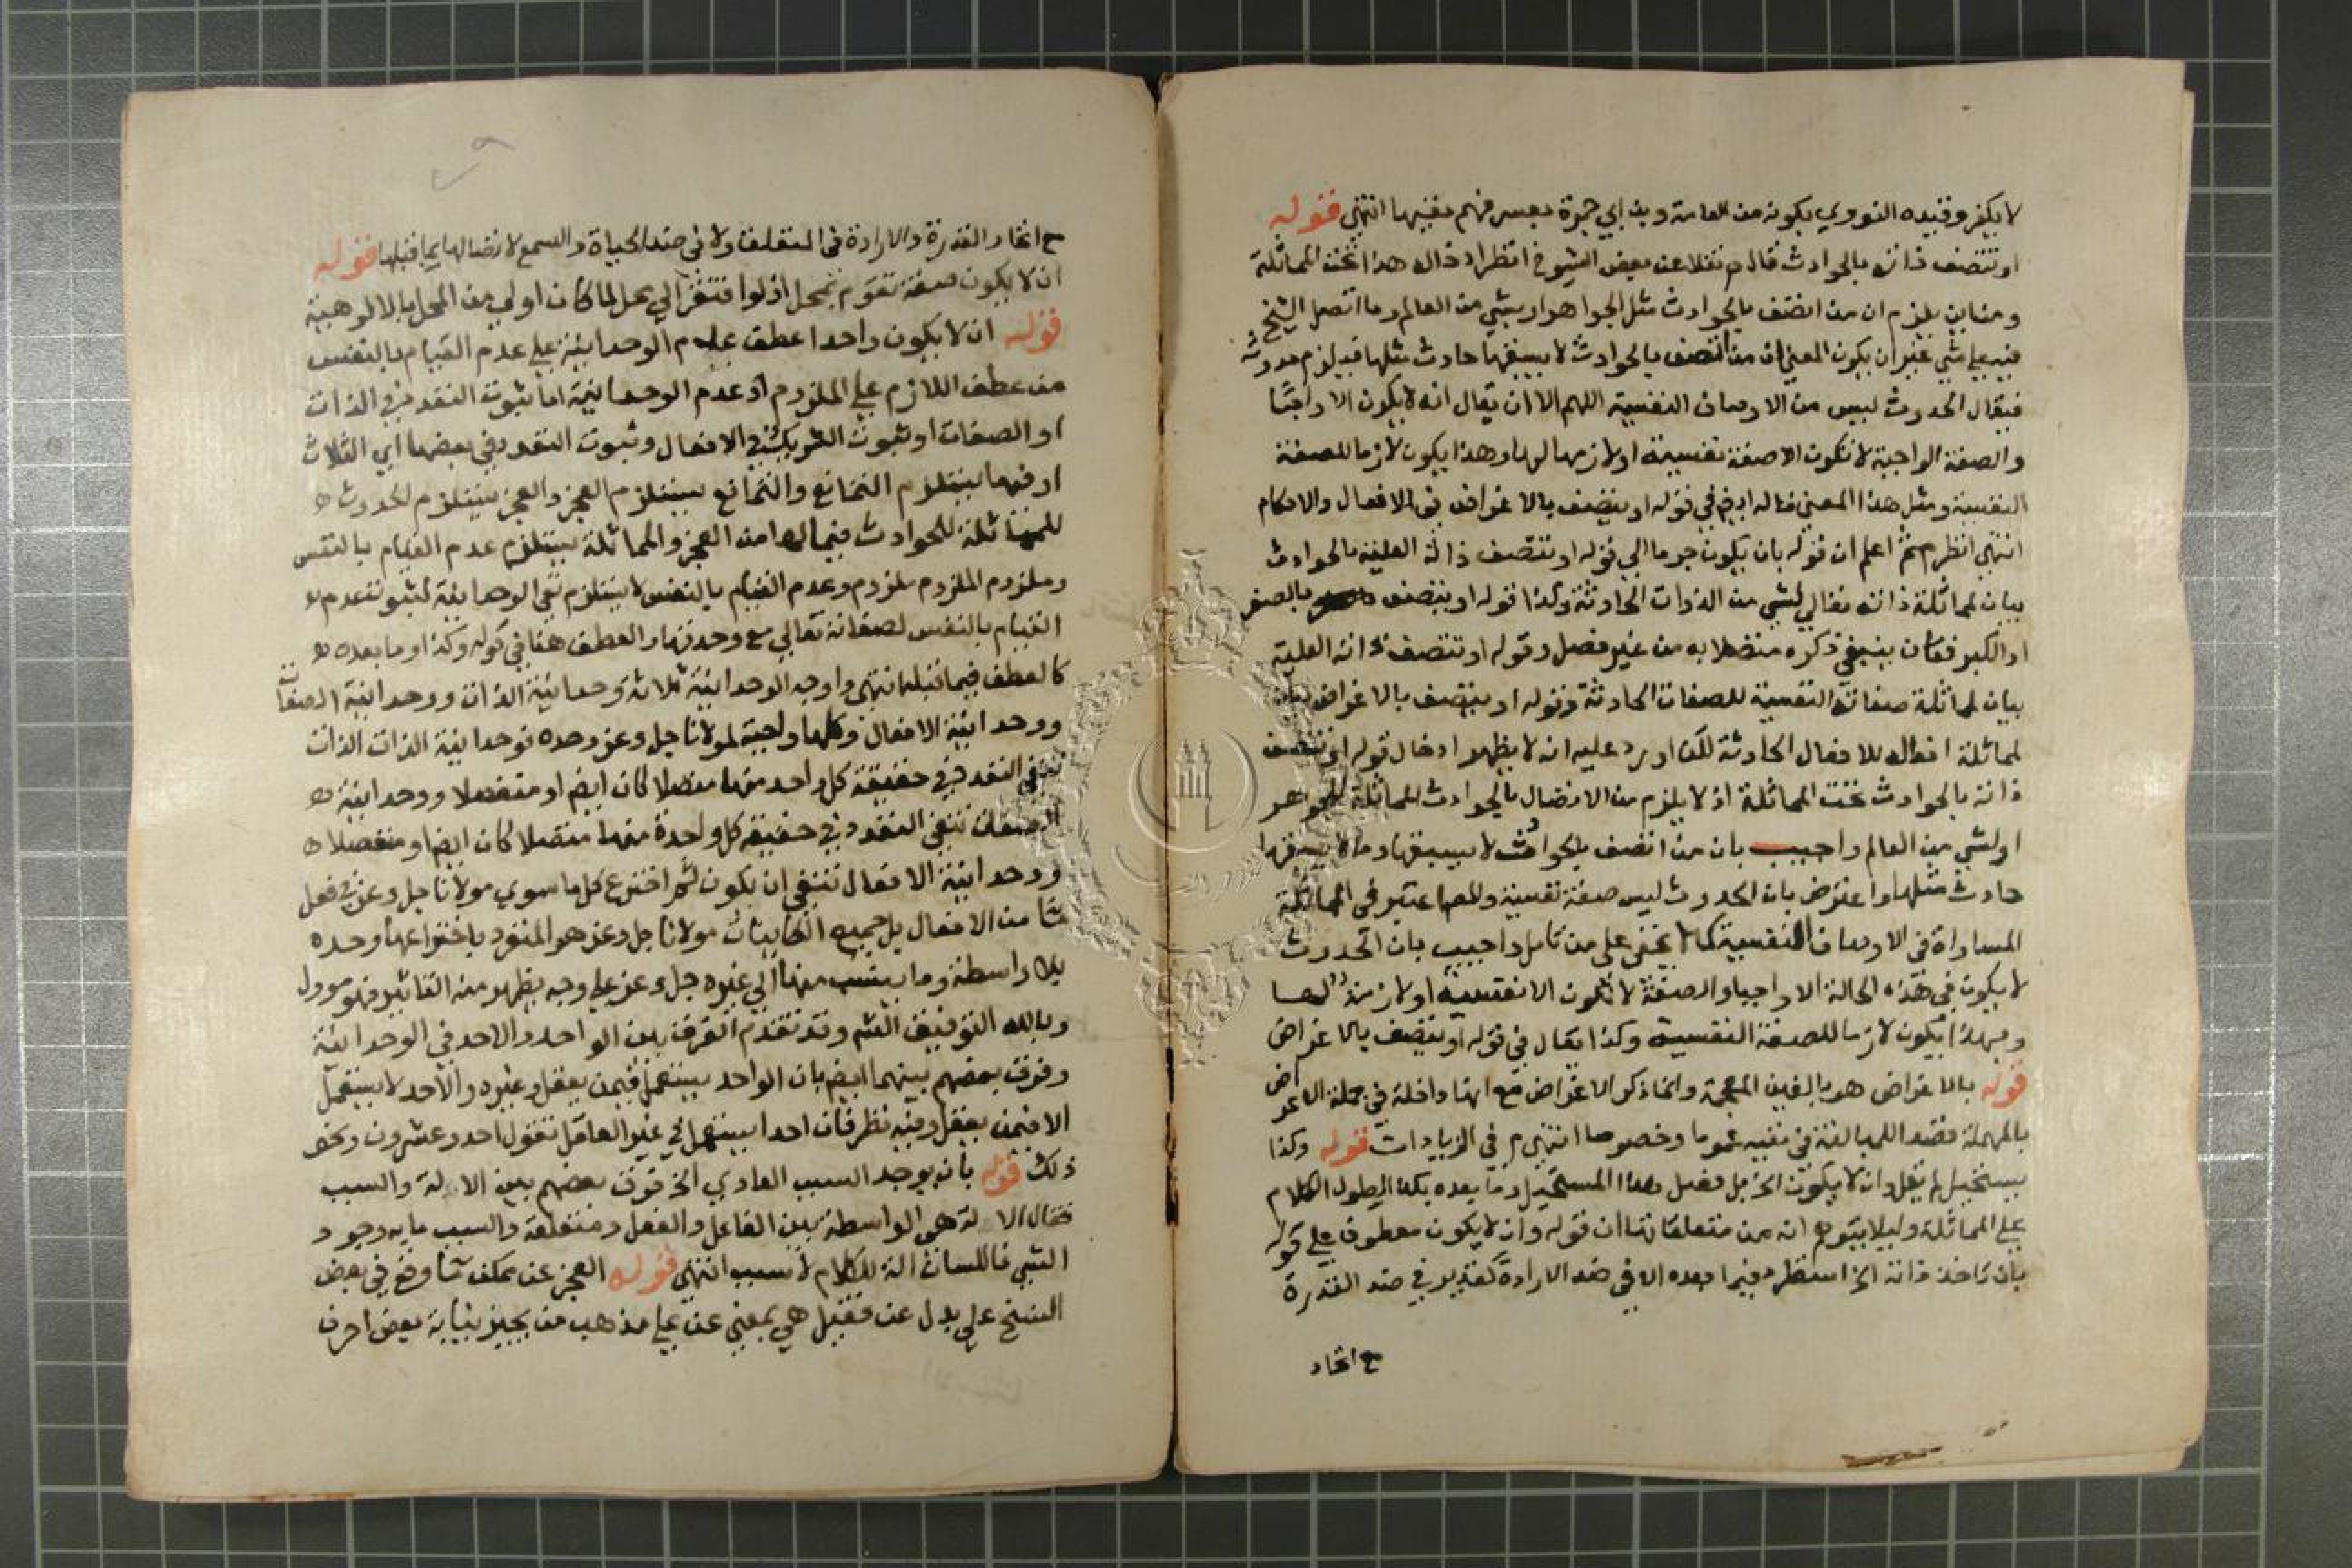 لا يكفر وقيده النووي بكونه من العامة وبن ابي جمرة بعسر فهم نفيها انتهى قوله
او تتصف ذاته بالحوادث قال م نقلا عن بعض الشيوخ انظر ادخاله هذا تحت المماثلة
ومن اين يلزم ان من اتصف بالحوادث مثل الجواهر او بشي من العالم وما اتصل الشيخ
فيه على شي غير ان يكون المعنى ان من اتصف بالحوادث لا يسبقها حادث مثلها فيلزم حدوثه
فيقال الحدوث ليس من الاوصاف النفسية اللهم الا ان يقال انه لا يكون الا واجبا
والصفة الواجبة لا تكون الا صفة نفسية او لازمها لها وهذا يكون لازما للصفة
النفسية ومثل هذا المعنى قاله ايض في قوله او يتصف بالاغراض في الافعال والاحكام
انتهى انظر م ثم اعلم ان قوله بان يكون جرما الى قوله او تتصف ذاته العلية بالحوادث
بيان لمماثلة ذاته تعالى لشي من الذوات الحادثة وكذا قوله او يتصف بالصغر
او الكبر فكان ينبغي ذكره متصلا به من غير فصل وقوله او تتصف ذاته العلية
بيان لمماثلة صفاته النفسية للصفات الحادثة وقوله او يتصف بالاغراض بيان
لمماثلة افعاله للافعال الحادثة لكن اورد عليه انه لا يظهر ادخال قوله او تتصف
ذاته بالحوادث تحت المماثلة اذ لا يلزم من الاتصال بالحوادث المماثلة للجواهر
او لشي من العالم واجيب بان من اتصف بالحوادث لا يسبقها وما لا يسبقها
حادث مثلها واعترض بان الحدوث ليس صفة نفسية والمعتبر في المماثلة
المساواة في الاوصاف النفسية كما لا يخفى على من تامل واجيب بان الحدوث
لا يكون في هذه الحالة الا واجبا والصفة لا تكون الا نفسية او لازمة لها
وبهذا يكون لازما للصفة النفسية وكذا يقال في قوله او يتصف بالاغراض
قوله بالاغراض هو بالغين المعجمة وانما ذكر الاغراض مع انها داخلة في جملة الاعراض
بالمهملة قصد اللمبالغة في نفيه عموما وخصوصا انتهى م في الزيادات قوله وكذا
يستحيل لم يقل وان لا يكون الخ بل فصل هذا المستحيل وما بعده بكذا لطول الكلام
على المماثلة وليلا يتوهم انه من متعلقاتها ان قوله وان لا يكون معطوف على قوله
بان تاخذ ذاته الخ استظهر فيما بعده الا في ضد الارادة كتقدير في ضد القدرة
ع اتحاد
ع اتحاد القدرة والارادة في المتعلق ولا في ضد الحياة والسمع لاتصالها بما قبلها قوله
ان لا يكون صفة تقوم بمحل اذ لو افتقر الى محل لما كان اولى من المحل بالالوهية
قوله ان لا يكون واحدا عطف عدم الوحدانية على عدم القيام بالنفس
من عطف اللازم على الملزوم اذ عدم الوحدانية اما ثبوت التعدد في الذات
او الصفات او ثبوت الشريك في الافعال وثبوت التعدد في بعضها اي الثلاث
او فيها يستلزم التمانع والتمانع يستلزم العجز والعجز يستلزم الحدوث
للمماثلة للحوادث فيما لها من العجز والمماثلة يستلزم عدم القيام بالنفس
وملزوم الملزوم ملزوم وعدم القيام بالنفس لا يستلزم نفي الوحدانية لثبوت عدم
القيام بالنفس لصفاته تعالى مع وحدتها والعطف هنا في قوله وكذا وما بعده
كالعطف فيما قبله انتهى واوجه الوحدانية ثلاثة وحدانية الذات ووحدانية الصفات
ووحدانية الافعال وكلها واجبة لمولانا جل وعز وحده فوحدانية الذات الذات
تنفي التعدد في حقيقة كل واحد منها متصلا كان ايض او منفصلا ووحدانية
الصفات تنفي التعدد في حقيقة كل واحدة منها متصلا كان ايض او منفصلا
ووحدانية الافعال تنفي ان يكون ثم اختراع كل ما سوى مولانا جل وعز في فعل
ما من الافعال بل جميع الكاينات مولانا جل وعز هو المنفرد باختراعها وحده
بلا واسطة وما ينسب منها الى غيره جل وعز على وجه يظهر منه التاثير فهو موول
وبالله التوفيق انتهى وقد تقدم الفرق بين الواحد والاحد في الوحدانية
وفرق بعضهم بينهما ايض بان الواحد يستعمل فيمن يعقل وغيره والاحد لا يستعمل
الا فيمن يعقل وفيه نظر فان احدا يستعمل في غير العاقل تقول احد وعشرون ونحو
ذلك قوله بان يوجد السبب العادي الخ فرق بعضهم بين الالة والسبب
فقال الالة هي الواسطة بين الفاعل والفعل ومتعلقه والسبب ما به وجود
الشي فاللسان الة للكلام لا سبب انتهى قوله العجز عن ممكن ما وقع في بعض
النسخ على بدل عن فقيل هي بمعنى عن على مذهب من يجيز نيابة بعض احرف